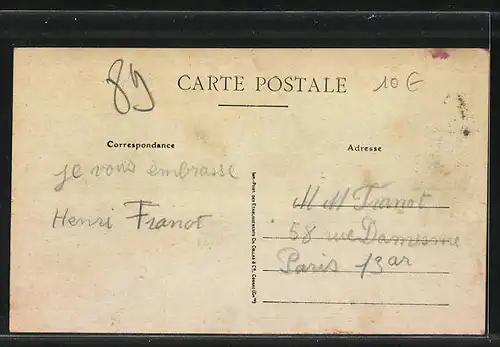 89
CARTE POSTALE
10 €
Correspondance
Adresse
je vous embrasse
Henri Franot
M M Franot
58 rue Damesme
Paris 13ar
Imp.-Phot. des Etablissements Ch. Collas & Cie, Cognac (Cte)